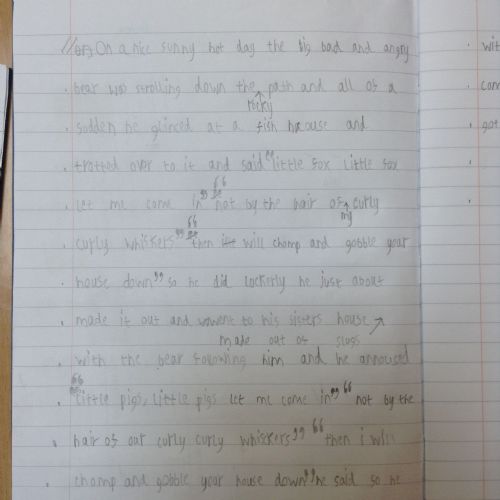 On a nice sunny hot day the big bad and angry
bear was strolling down the path and all of a
rocky
sodden he glinced at a fish house and
trotted over to it and said "little fox little fox
let me come in" "not by the hair of curly
my
curly whiskers" "then will chomp and gobble your
house down" so he did luckerly he just about
made it out and went to his sisters house
made out of slugs
with the bear following him and he annouced
"little pigs, little pigs let me come in" "not by the
hair of our curly curly whiskers" "then i will
chomp and gobble your house down" he said so he
wit
com
got